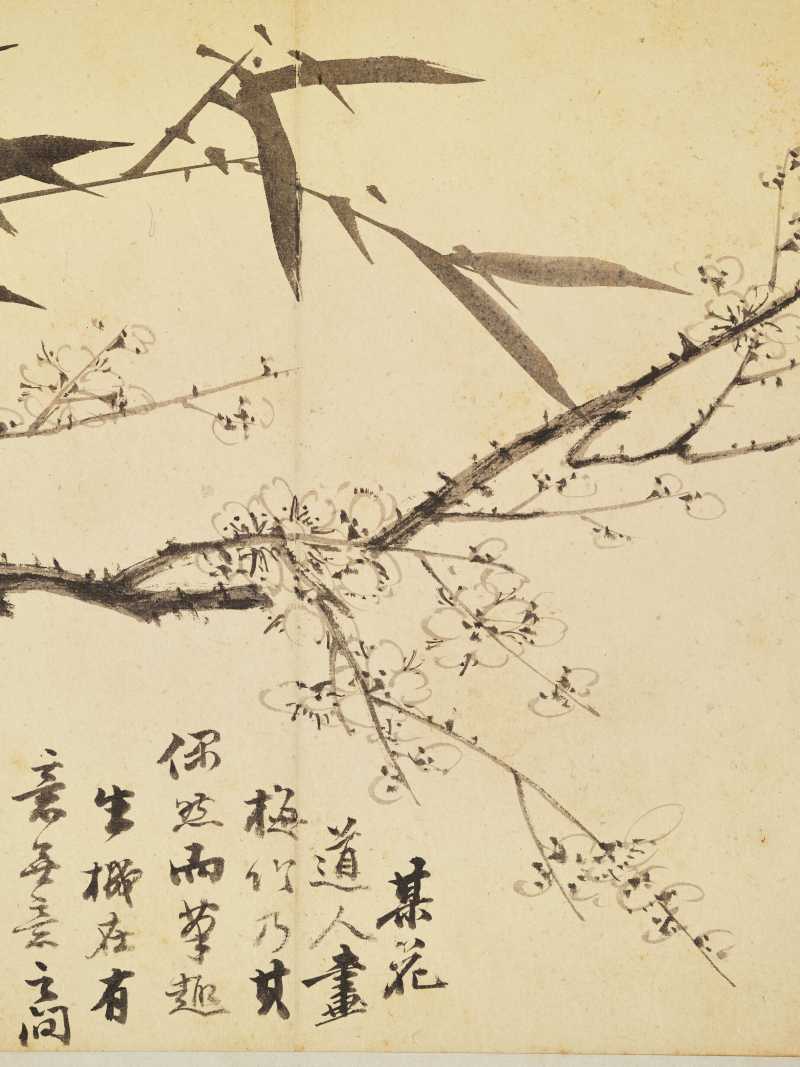 某花
道人畫
梅竹乃其
偶然而筆趣
生機在有
意無意之間